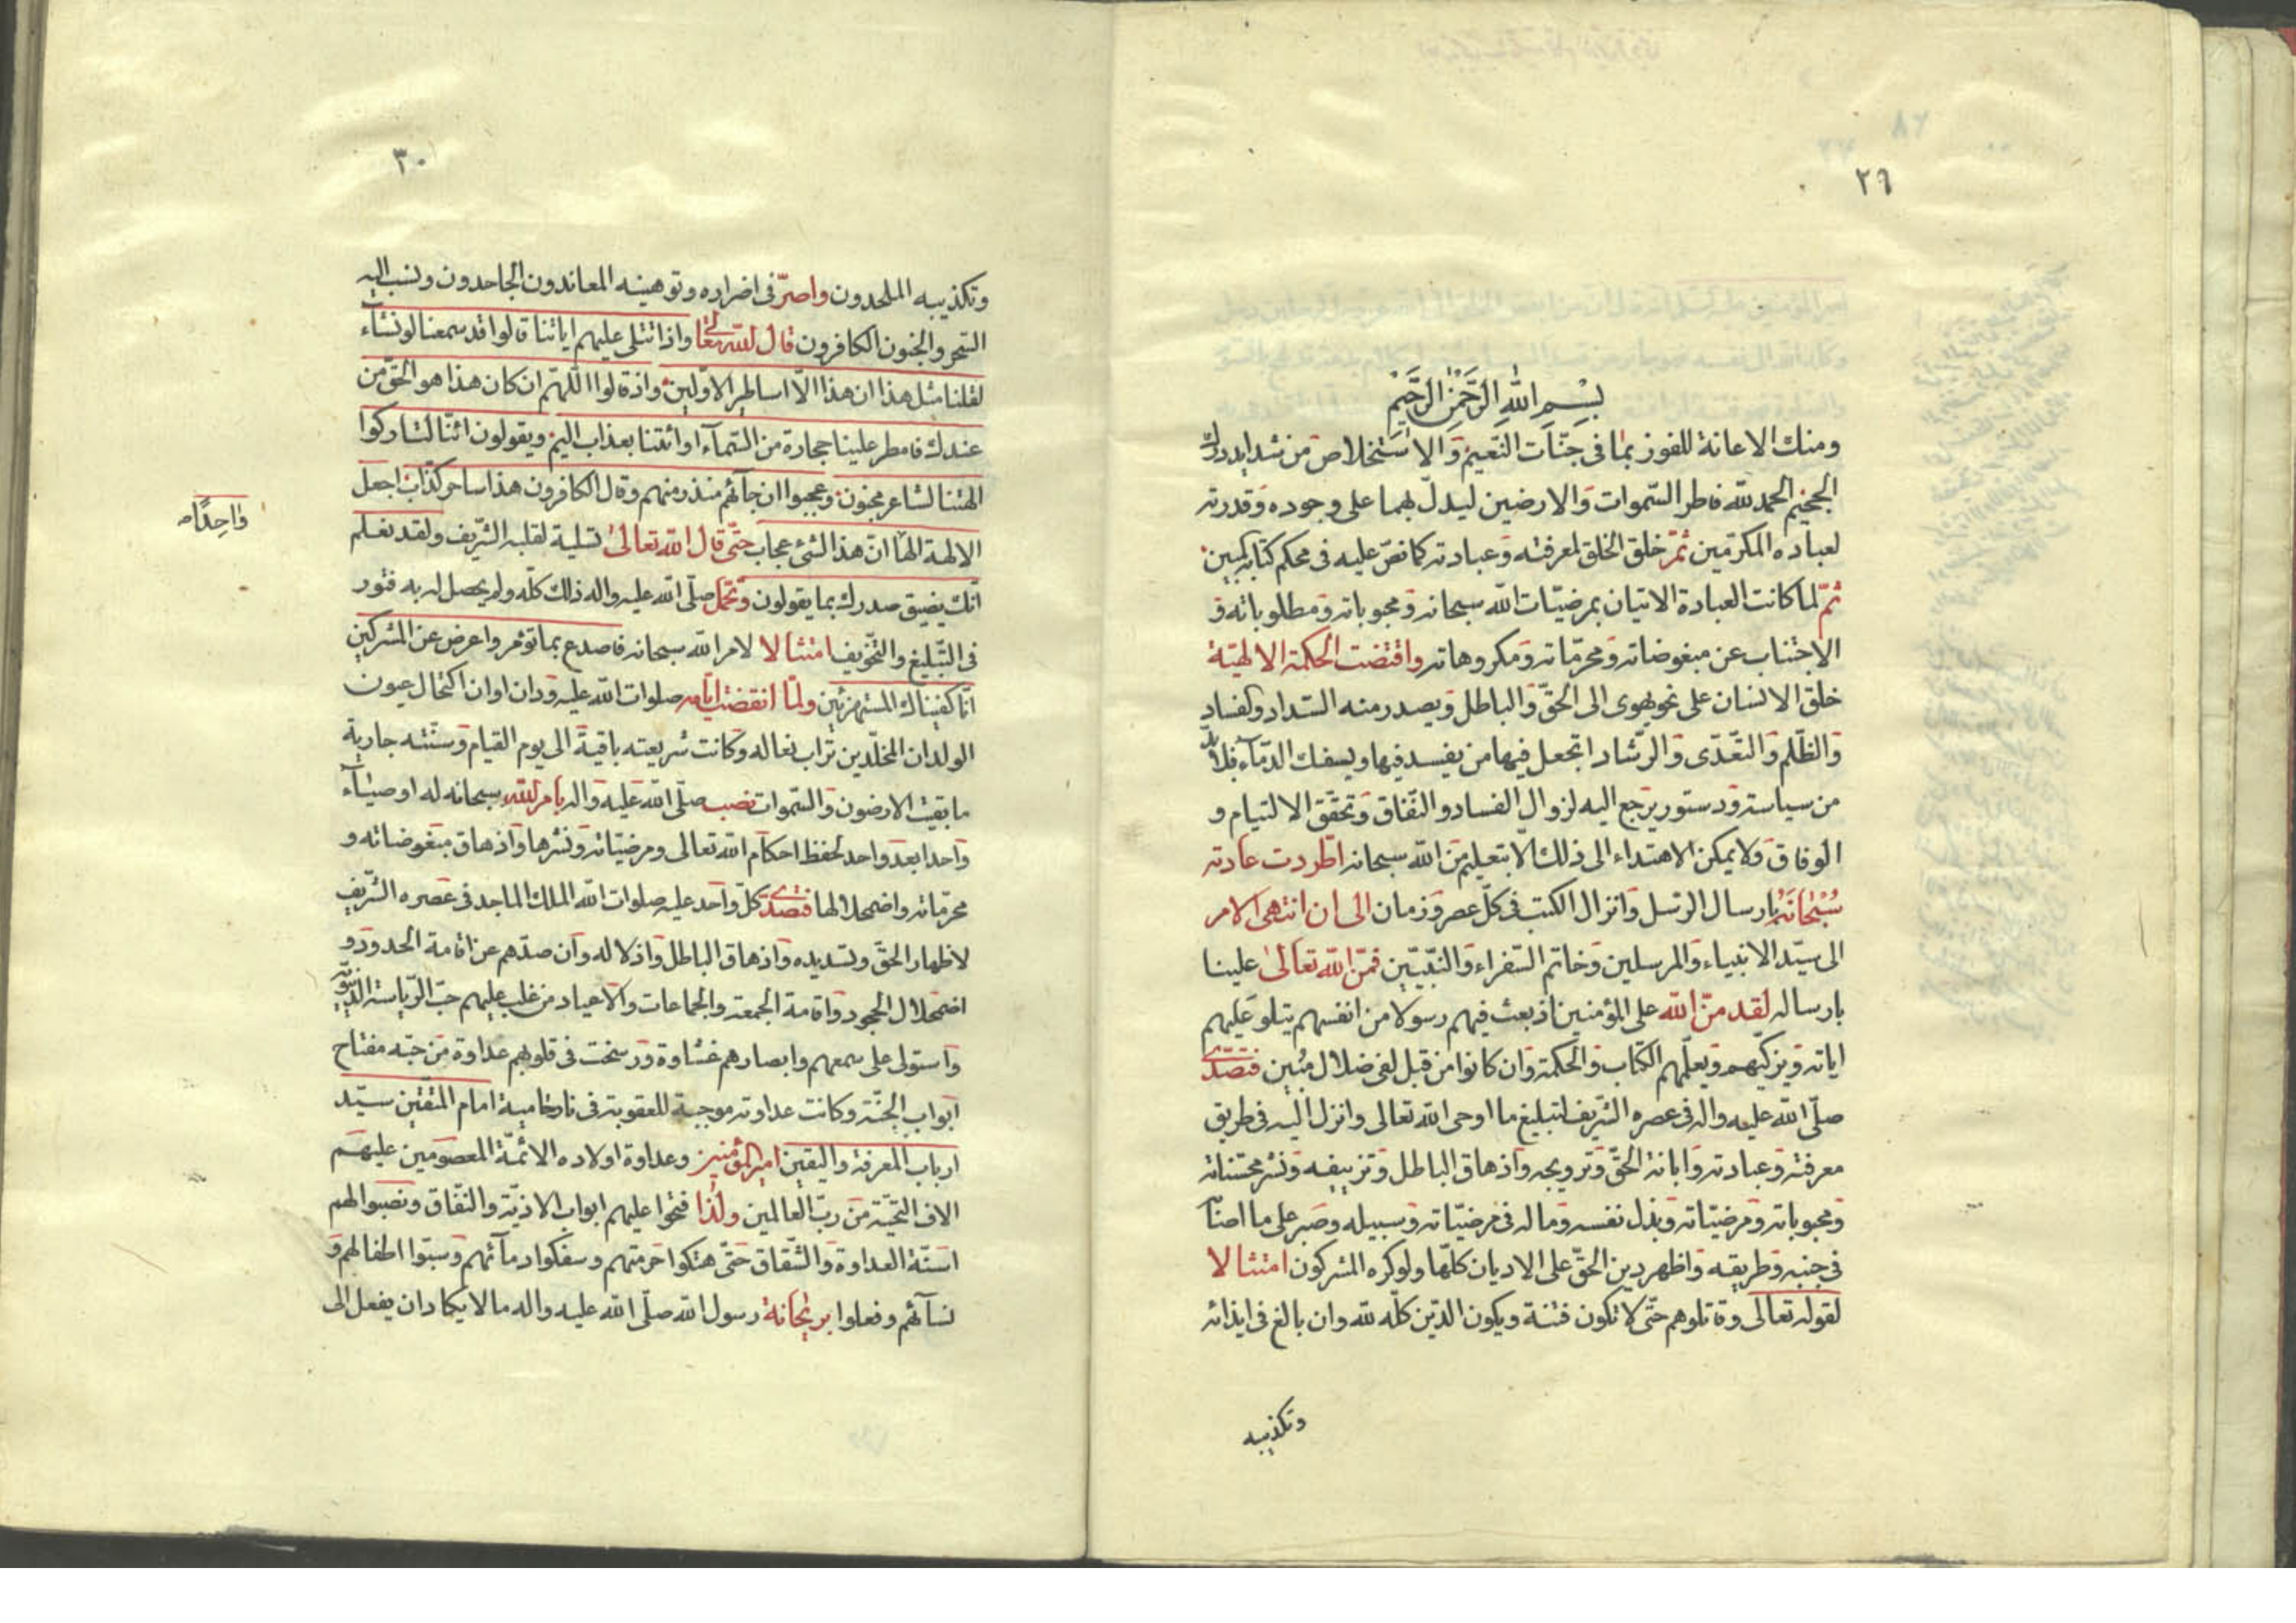 ٢٩
بِسْمِ اللهِ الرَّحْمٰنِ الرَّحِيْمِ
ومنك الاعانة للفوز بما فى جنّات النّعيم والاستخلاص من شدايد درك
الجحيم الحمد للّه فاطر السّموات والارضين ليدلّ بهما على وجوده وقدرته
لعباده المكرّمين ثمّ خلق الخلق لمعرفته وعبادته كما نصّ عليه فى محكم كتابه المبين
ثمّ لما كانت العبادة الاتيان بمرضيّات اللّه سبحانه ومحبوباته ومطلوباته و
الاجتناب عن مبغوضاته ومحرّماته ومكروهاته واقتضت الحكمة الالهيّة
خلق الانسان على نحو يهوى الى الحقّ والباطل ويصدر منه السّداد والفساد
والظّلم والتّعدّى والرّشاد اتجعل فيها من يفسد فيها ويسفك الدّماء فلا بدّ
من سياسة ودستور يرجع اليه لزوال الفساد والنّفاق وتحقّق الالتيام و
الوفاق ولا يمكن الاهتداء الى ذلك الّا بتعليم من اللّه سبحانه اطّردت عادته
سُبْحَانَهُ بارسال الرّسل وانزال الكتب فى كلّ عصر وزمان الى ان انتهى الامر
الى سيّد الانبياء والمرسلين وخاتم السّفراء والنّبيّين فمّن اللّه تعالىٰ علينا
بارساله لقد منّ اللّه على المؤمنين اذ بعث فيهم رسولا من انفسهم يتلو عليهم
اياته ويزكّيهم ويعلّمهم الكتاب والحكمة وان كانوا من قبل لفى ضلال مُبين فتصدّى
صلّى اللّه عليه واله فى عصره الشّريف لتبليغ ما اوحى اللّه تعالى وانزل اليه فى طريق
معرفته وعبادته وابانة الحقّ وترويجه واذهاق الباطل وتزييفه ونشر محسّناته
ومحبوباته ومرضيّاته وبذل نفسه وماله فى مرضيّاته وسبيله وصبر على ما اصابه
فى جنبه وطريقه واظهر دين الحقّ على الاديان كلّها ولو كره المشركون امتثالا
لقوله تعالى وقاتلوهم حتّى لا تكون فتنة ويكون الدّين كلّه للّه وان بالغ فى ايذائه
وتكذيبه
٣٠
وتكذيبه الملحدون واصرّ فى اضراره وتوهينه المعاندون الجاحدون ونسب اليه
السّحر والجنون الكافرون قال اللّه تعالى واذا تتلى عليهم اياتنا قالوا قد سمعنا لو نشآء
لقلنا مثل هذا ان هذا الّا اساطير الاوّلين واذ قالوا اللّهمّ ان كان هذا هو الحقّ من
عندك فامطر علينا حجارة من السّمآء او ائتنا بعذاب اليم ويقولون ائنّا لتاركوا
الهتنا لشاعر مجنون وعجبوا ان جآئهم منذر منهم وقال الكافرون هذا ساحر كذّاب اجعل
الالهة الها انّ هذا لشئ عجاب حتّى قال اللّه تعالىٰ تسلية لقلبه الشّريف ولقد نعلم
واحِدًا
انّك يضيق صدرك بما يقولون وتحمّل صلّى اللّه عليه واله ذلك كلّه ولم يحصل له به فتور
فى التّبليغ والتّخويف امتثالا لامر اللّه سبحانه فاصدع بما تؤمر واعرض عن المشركين
انّا كفيناك المستهزئين ولمّا انقضت ايّامه صلوات اللّه عليه ودان اوان اكتحال عيون
الولدان المخلّدين تراب نعاله وكانت شريعته باقية الى يوم القيام وسنّته جارية
ما بقيت الارضون والسّموات نصب صلّى اللّه عليه واله بامر اللّه سبحانه له اوصيآء
واحدا بعد واحد لحفظ احكام اللّه تعالى ومرضيّاته ونشرها واذهاق مبغوضاته و
محرّماته واضمحلالها فتصدّى كلّ واحد عليه صلوات اللّه الملك الماجد فى عصره الشّريف
لاظهار الحقّ وتسديده واذهاق الباطل واذلاله وان صدّهم عن اقامة الحدود و
اضمحلال الجحود واقامة الجمعة والجماعات والاعياد من غلب عليهم حبّ الرّياسة الدّنيويّة
واستولى على سمعهم وابصارهم غشاوة ورسخت فى قلوبهم عداوة من حبّه مفتاح
ابواب الجنّة وكانت عداوته موجبة للعقوبة فى نار حامية امام المتّقين سيّد
ارباب المعرفة واليقين امير المؤمنين وعداوة اولاده الائمّة المعصومين عليهم
الاف التّحيّة من ربّ العالمين ولذا فتحوا عليهم ابواب الاذيّة والنّفاق ونصبوا لهم
اسنّة العداوة والشّقاق حتّى هتكوا حرمتهم وسفكوا دمآئهم وسبّوا اطفالهم و
نسآئهم وفعلوا بريحانة رسول اللّه صلّى اللّه عليه واله ما لا يكاد ان يفعل الى